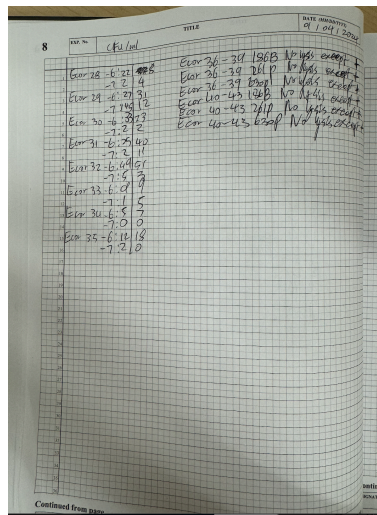 8
EXP. No.
TITLE
DATE (MM/DD/YYYY)
CFU/ml
Ecor 28 -6: 22
-7: 2 4
Ecor 29 -6: 27 31
12
Ecor 30 -6: 23
-7: 2 2
Ecor 31 -6: 40
-7: 2 11
Ecor 32 -6: 49 51
-7: 5 3
Ecor 33 -6: 9 9
-7: 1 5
Ecor 34 -6: 5 7
-7: 0 0
Ecor 35 -6: 12 18
-7: 2 0
Ecor 36-39 186B No lysis except +
Ecor 36-39 261P No lysis except +
Ecor 36-39 630P No lysis except +
Ecor 40-43 186B No lysis except +
Ecor 40-43 261P No lysis except +
Ecor 40-43 630P No lysis except +
Continued from page